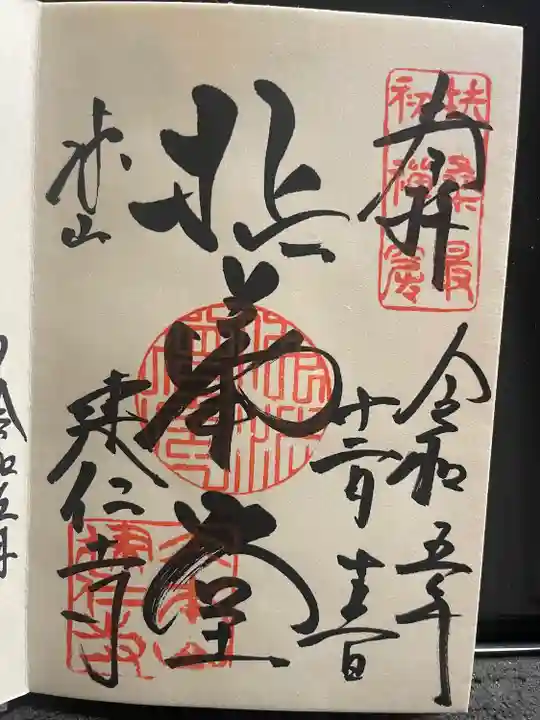 奉拝
扶桑最
初禅窟
令和五年
十二月
拈華堂
東山
建仁寺
令和五年